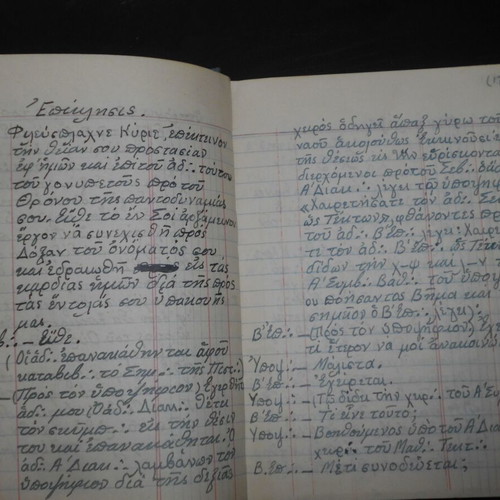 Ἐπίκλησις.
Φιλεύσπλαχνε Κύριε, ἐπέκτεινον
τὴν θείαν σου προστασίαν
ἐφ' ἡμῶν καὶ ἐπὶ τοῦ ἀδ∴ τούτου
τοῦ γονυπετοῦς πρὸ τοῦ
Θρόνου τῆς παντοδυναμίας
σου. εἴθε τὸ ἐν Σοὶ ἀρξάμενον
ἔργον νὰ συνεχισθῇ πρὸς
Δόξαν τοῦ ὀνόματός σου
καὶ ἑδραιωθῇ εἰς τὰς
καρδίας ἡμῶν διὰ τῆς πρὸς
τὰς ἐντολάς σου ὑπακοῆς
μας.
— Εἴθε.
(Οἱ ἀδ∴ ἐπανακάθηνται ἀφοῦ
καταβιβ∴ τὸ Σημ∴ τῆς Πιστ∴)
— (Πρὸς τὸν ὑποψήφιον) Ἐγέρθητι
ἀδ∴ μου (Ὁ ἀδ∴ Διακ∴ θέτει
τὸν σκίμπ∴ εἰς τὴν θέσιν
του καὶ ἐπανακάθηται. Ὁ
ἀδ∴ Α' Διακ∴ λαμβάνων τὸν
ὑποψήφιον διὰ τῆς δεξιᾶς
χειρὸς ὁδηγεῖ ἅπαξ γύρω τοῦ
ναοῦ ἀκολούθως
τῆς θέσεώς εἰς ἣν εὑρίσκοντο
διερχόμενοι πρὸ τοῦ Σεβ∴
Α' Διακ∴ λέγει τῷ ὑποψηφ
«Χαιρετήσατε τὸν ἀδ∴ Σεβ
ὡς Τέκτων» φθάνοντες π
τοῦ ἀδ∴ Β' Ἐπ∴ λέγει: Χαιρε
τε τὸν ἀδ∴ Β' Ἐπ∴ ὡς Τέκ
δίδων τὴν χ—ψ καὶ —ν τ
Α' Συμβ∴ Βαθ∴ τοῦ ὑποψ
ου ποιήσαντος Βῆμα καὶ
σημεῖον ὁ Β' Ἐπ∴ λέγει:
Β' Ἐπ∴ (Πρὸς τὸν ὑποψήφιον) ἔχε
τι ἕτερον νὰ μοὶ ἀνακοιν
Ὑποψ∴ — Μάλιστα.
Β' Ἐπ∴ — Ἐγείρεται.
Ὑποψ∴ — (Τῷ δίδει τὴν χειρ∴ τοῦ Α' Συ
Β' Ἐπ∴ — Τί εἶνε τοῦτο;
Ὑποψ∴ — Βοηθούμενος ὑπὸ τοῦ Α' Δια
χειρ∴ τοῦ Μαθ∴ Τεκτ∴
Β. Ἐπ∴ — Μὲ τί συνοδεύεται;